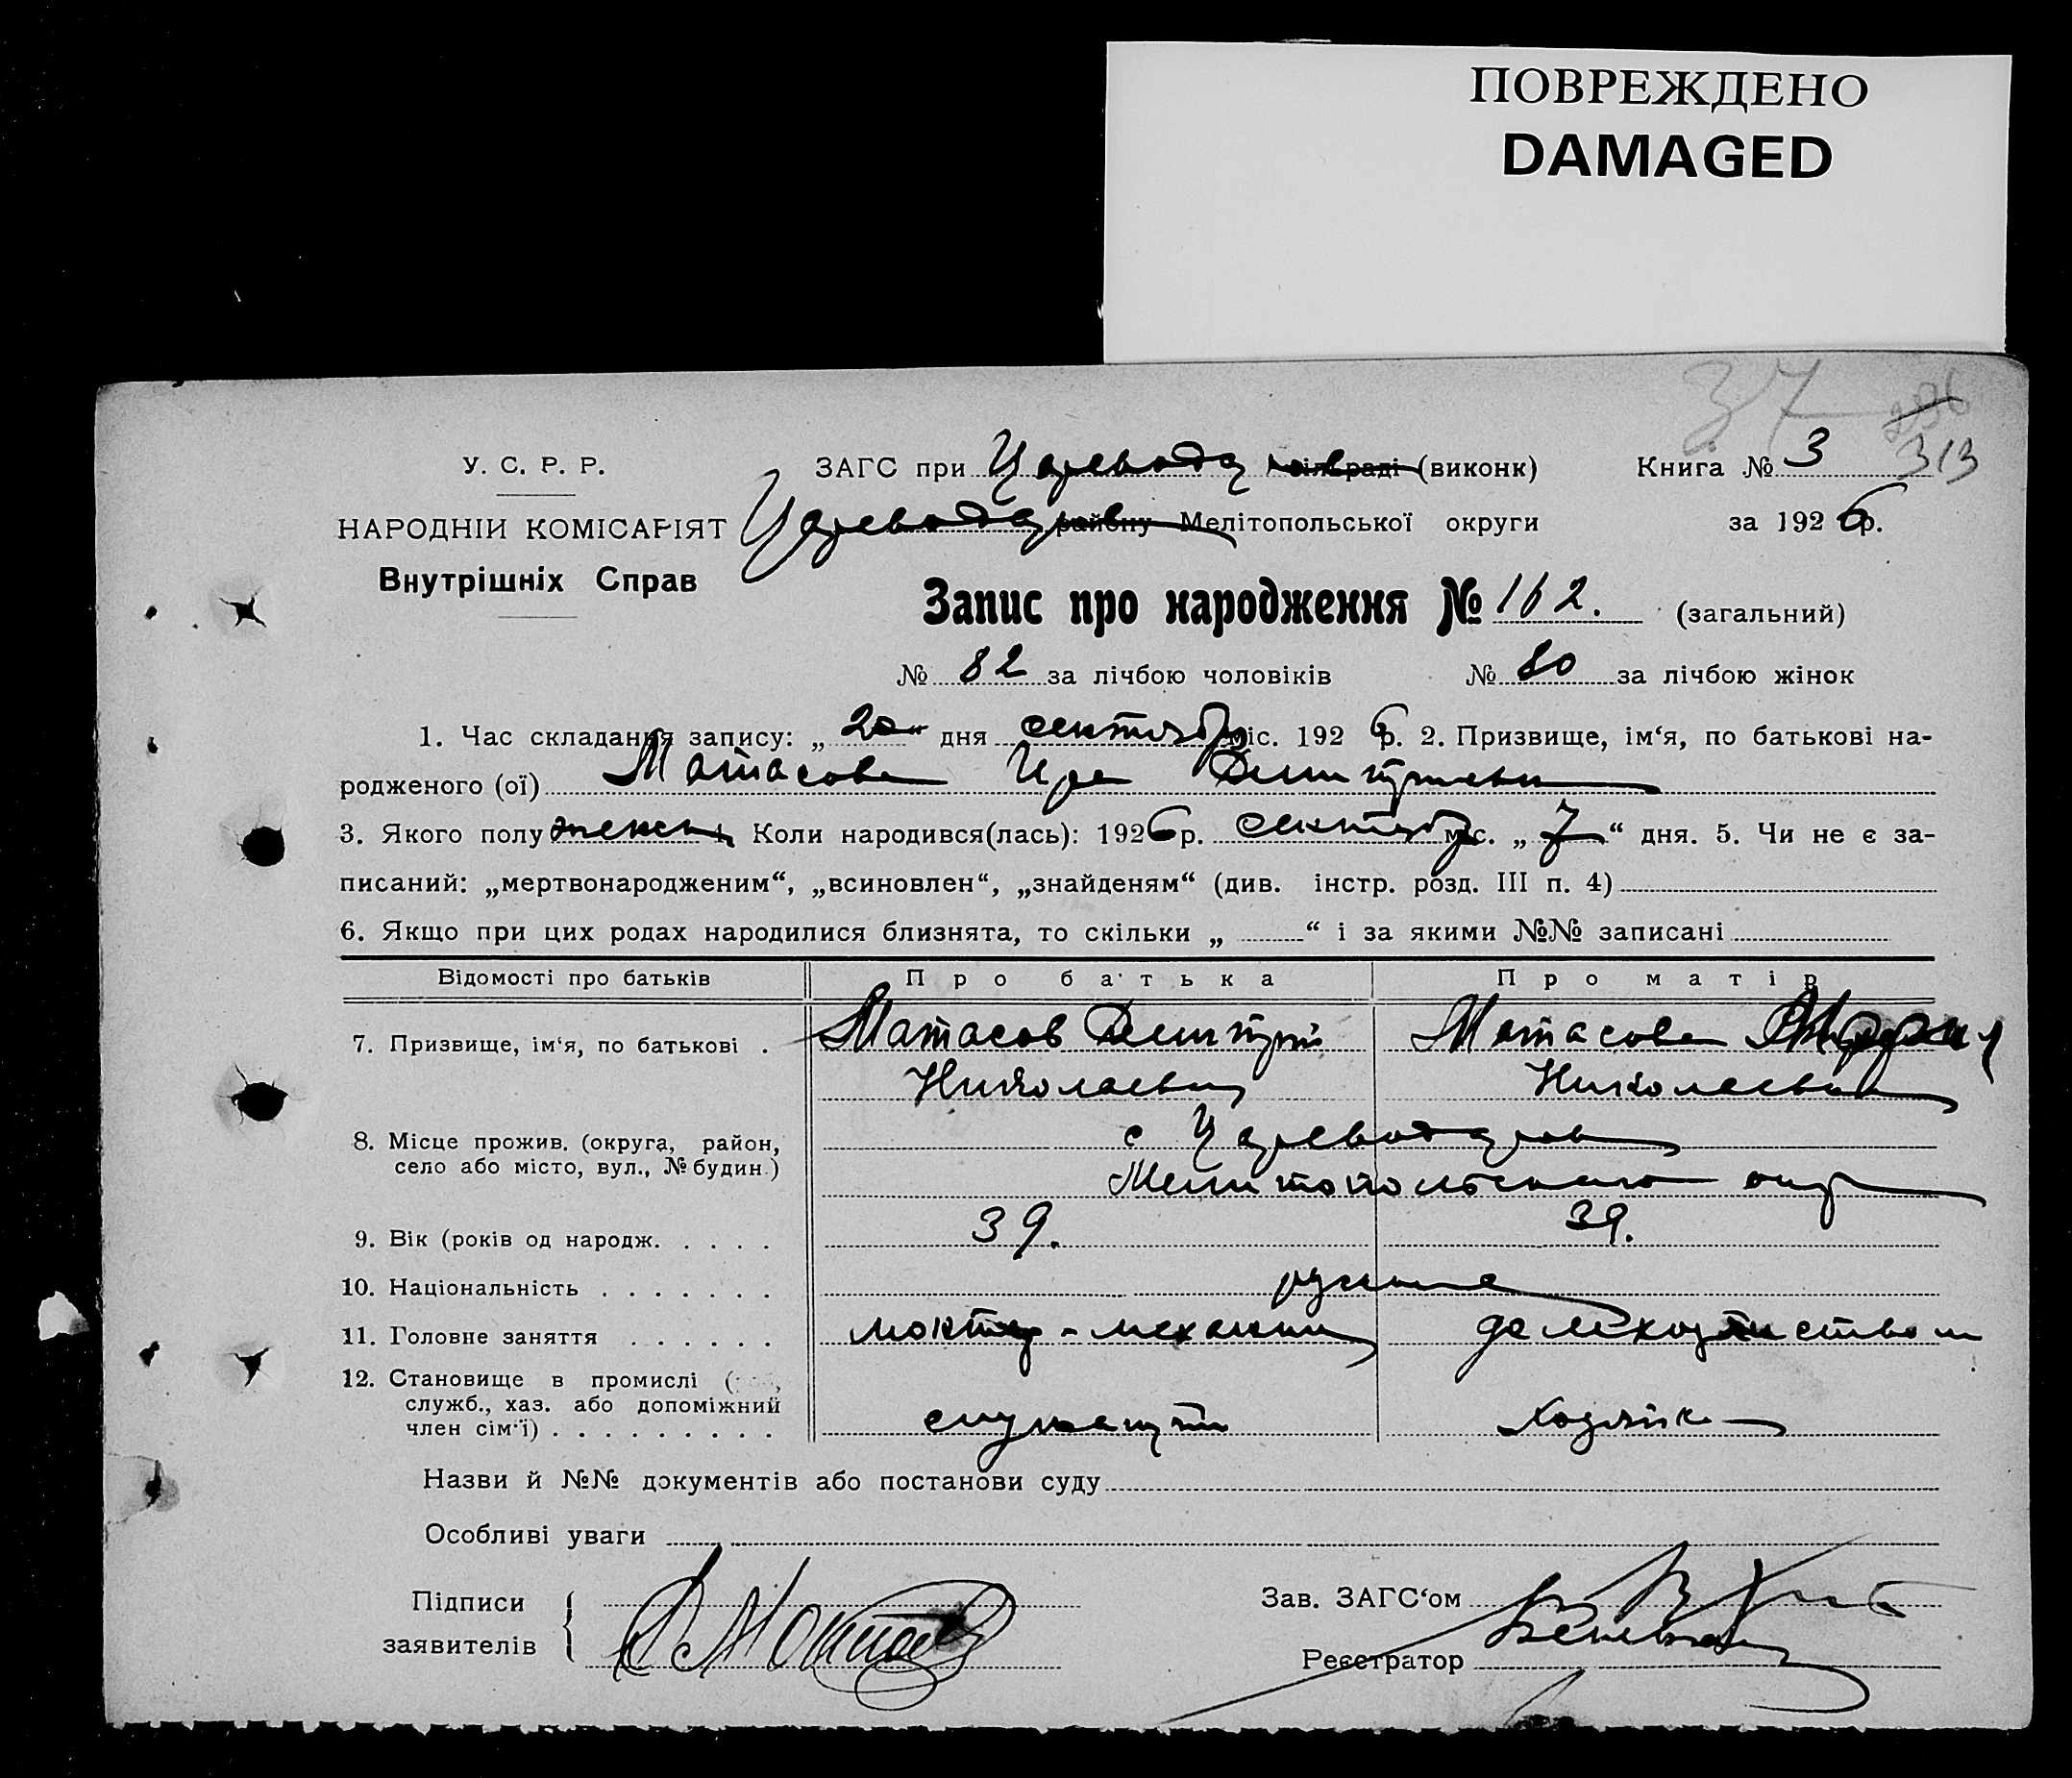 ПОВРЕЖДЕНО
DAMAGED
37
313
У. С. Р. Р.
ЗАГС при Царевода (виконк)
Книга № 3
НАРОДНІЙ КОМІСАРІЯТ
району Мелітопольської округи
за 1926 р.
Внутрішніх Справ
Запис про народження № 162. (загальний)
№ 82 за лічбою чоловіків № 80 за лічбою жінок
1. Час складання запису: „20“ дня сентябр міс. 1926 р. 2. Призвище, ім‘я, по батькові на-
родженого (ої) Матасова Ира Дмитриевна
3. Якого полу женск Коли народився(лась): 1926 р. сентябр міс. „7“ дня. 5. Чи не є за-
писаний: „мертвонародженим“, „всиновлен“, „знайденям“ (див. інстр. розд. III п. 4)
6. Якщо при цих родах народилися близнята, то скільки „ “ і за якими №№ записані
Відомості про батьків Про батька Про матір
7. Призвище, ім‘я, по батькові . Матасов Дмитрий Матасова
Николаевич Николаевна
8. Місце прожив. (округа, район, с
село або місто, вул., № будин.) Мелитопольского окр
9. Вік (років од народж. . . . . 39. 39.
10. Національність . . . . . . . русские
11. Головне заняття . . . . . . монтер-механик домохозяйством
12. Становище в промислі (
служб., хаз. або допоміжний служащий хозяйка
член сім‘ї) . . . . . . . . .
Назви й №№ документів або постанови суду
Особливі уваги
Підписи
заявителів
Зав. ЗАГС‘ом
Реєстратор